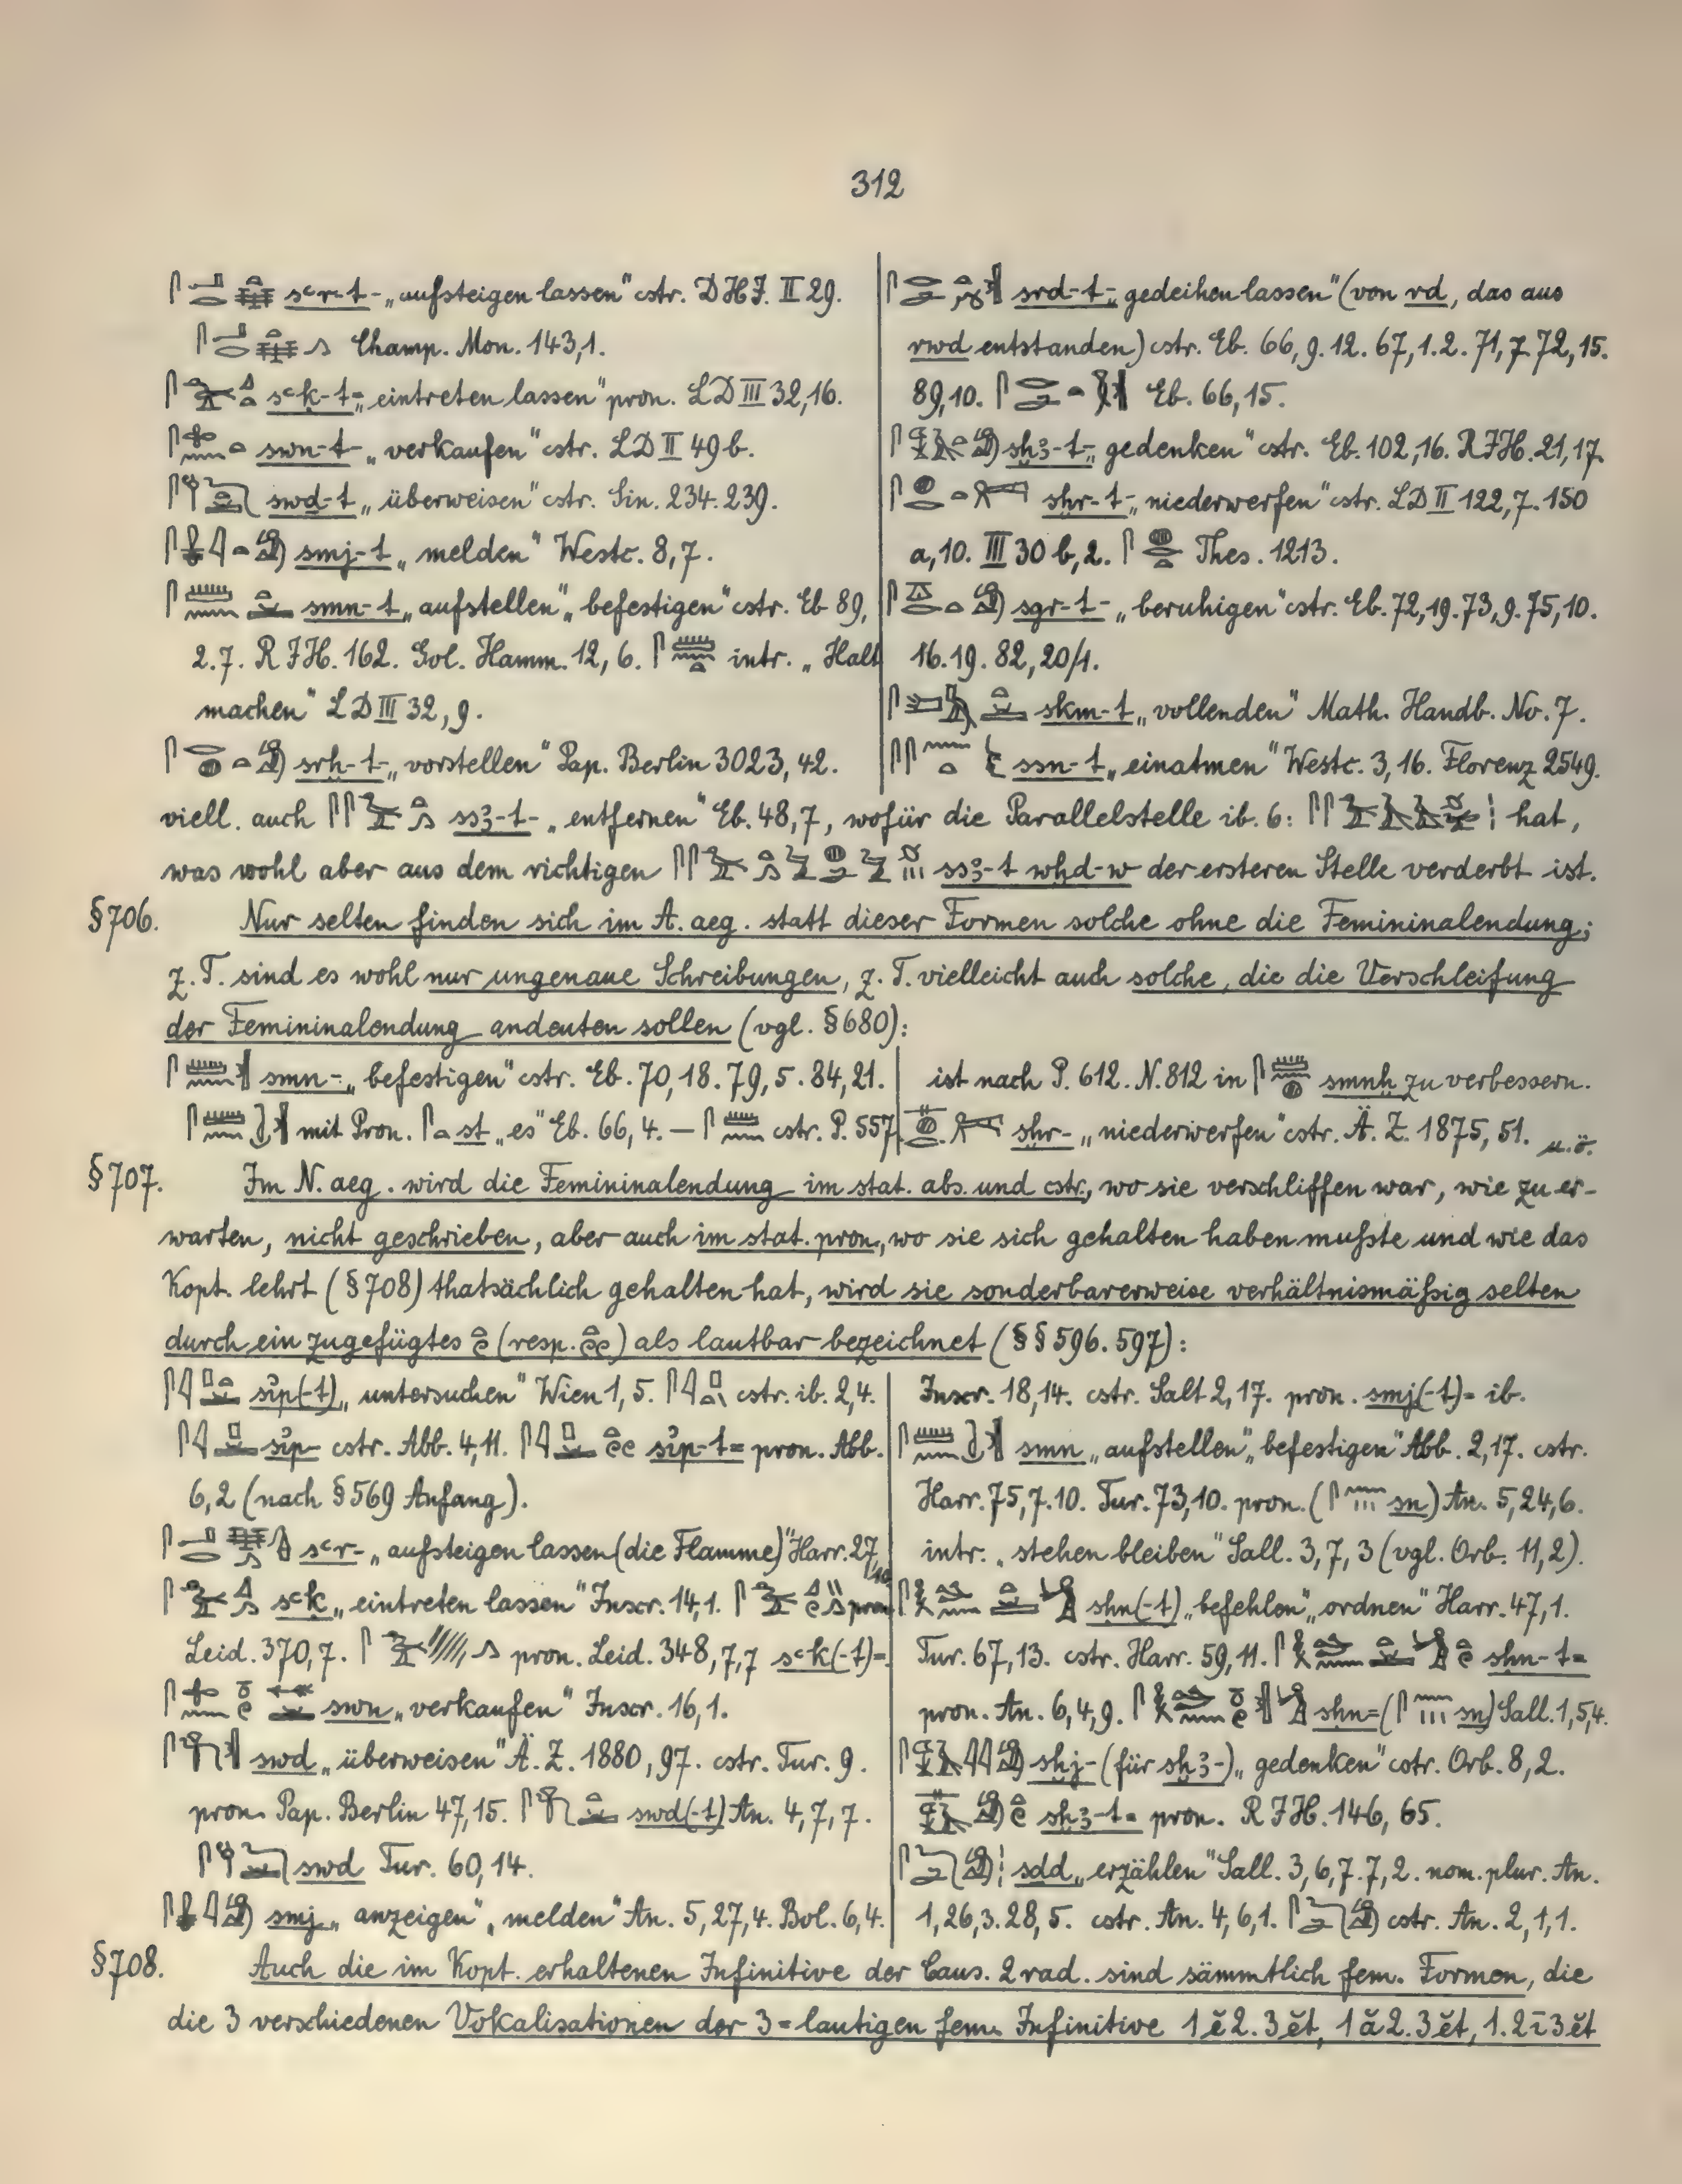 312
sꜥr-t- „aufsteigen lassen" cstr. DHJ. II 29.
Champ. Mon. 143,1.
sꜥḳ-t= „eintreten lassen" pron. LD III 32,16.
swn-t- „verkaufen" cstr. LD II 49 b.
swd-t „überweisen" cstr. Sin. 234. 239.
smj-t „melden" Westc. 8,7.
smn-t „aufstellen", „befestigen" cstr. Eb 89,
2.7. RJH. 162. Gol. Hamm. 12, 6. intr. „Halt
machen" LD III 32, 9.
srḫ-t- „vorstellen" Pap. Berlin 3023, 42.
srd-t- „gedeihen lassen" (von rd, das aus
rwd entstanden) cstr. Eb. 66, 9. 12. 67, 1. 2. 71, 7. 72, 15.
89, 10. Eb. 66, 15.
sḫꜣ-t- „gedenken" cstr. Eb. 102, 16. RJH. 21, 17.
sḫr-t- „niederwerfen" cstr. LD II 122, 7. 150
a, 10. III 30 b, 2. Thes. 1213.
sgr-t- „beruhigen" cstr. Eb. 72, 19. 73, 9. 75, 10.
16. 19. 82, 20/1.
skm-t „vollenden" Math. Handb. No. 7.
ssn-t „einatmen" Westc. 3, 16. Florenz 2549.
viell. auch ssꜣ-t- „entfernen" Eb. 48, 7, wofür die Parallelstelle ib. 6: hat,
was wohl aber aus dem richtigen ssꜣ-t wḫd-w der ersteren Stelle verderbt ist.
§706. Nur selten finden sich im A. aeg. statt dieser Formen solche ohne die Femininalendung;
z. T. sind es wohl nur ungenaue Schreibungen, z. T. vielleicht auch solche, die die Verschleifung
der Femininalendung andeuten sollen (vgl. §680):
smn- „befestigen" cstr. Eb. 70, 18. 79, 5. 84, 21.
mit Pron. st „es" Eb. 66, 4. — cstr. P. 557
ist nach P. 612. N. 812 in smnḫ zu verbessern.
sḫr- „niederwerfen" cstr. Ä. Z. 1875, 51. u. ö.
§707. Im N. aeg. wird die Femininalendung im stat. abs. und cstr., wo sie verschliffen war, wie zu er-
warten, nicht geschrieben, aber auch im stat. pron., wo sie sich gehalten haben mußte und wie das
Kopt. lehrt (§708) thatsächlich gehalten hat, wird sie sonderbarerweise verhältnismäßig selten
durch ein zugefügtes (resp. ) als lautbar bezeichnet (§§ 596. 597):
sı͗p(-t) „untersuchen" Wien 1, 5. cstr. ib. 2, 4.
sı͗p- cstr. Abb. 4, 11. sı͗p-t= pron. Abb.
6, 2 (nach §569 Anfang).
sꜥr- „aufsteigen lassen (die Flamme)" Harr. 27,
sꜥḳ „eintreten lassen" Inscr. 14, 1. pron.
Leid. 370, 7. pron. Leid. 348, 7, 7 sꜥḳ(-t)=.
swn „verkaufen" Inscr. 16, 1.
swd „überweisen" Ä. Z. 1880, 97. cstr. Tur. 9.
pron. Pap. Berlin 47, 15. swd(-t) An. 4, 7, 7.
swd Tur. 60, 14.
smj „anzeigen", „melden" An. 5, 27, 4. Bol. 6, 4.
Inscr. 18, 14. cstr. Salt 2, 17. pron. smj(-t)= ib.
smn „aufstellen", „befestigen" Abb. 2, 17. cstr.
Harr. 75, 7. 10. Tur. 73, 10. pron. ( sn) An. 5, 24, 6.
intr. „stehen bleiben" Sall. 3, 7, 3 (vgl. Orb. 11, 2).
sḥn(-t) „befehlen", „ordnen" Harr. 47, 1.
Tur. 67, 13. cstr. Harr. 59, 11. sḥn-t=
pron. An. 6, 4, 9. sḥn= ( sn) Sall. 1, 5, 4.
sḫj- (für sḫꜣ-) „gedenken" cstr. Orb. 8, 2.
sḫꜣ-t= pron. RJH. 146, 65.
sdd „erzählen" Sall. 3, 6, 7. 7, 2. nom. plur. An.
1, 26, 3. 28, 5. cstr. An. 4, 6, 1. cstr. An. 2, 1, 1.
§708. Auch die im Kopt. erhaltenen Infinitive der Caus. 2 rad. sind sämmtlich fem. Formen, die
die 3 verschiedenen Vokalisationen der 3=lautigen fem. Infinitive 1ĕ2.3ĕt, 1ă2.3ĕt, 1.2ī3ĕt